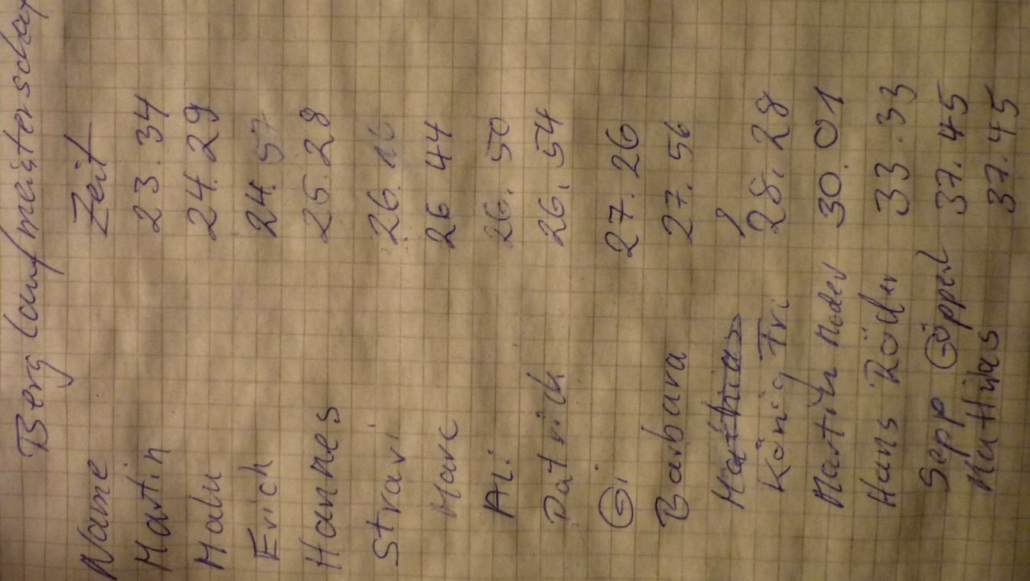 Berglaufmeisterschaf
Name Zeit
Martin 23.34
Malu 24.29
Erich 24.57
Hannes 25.28
Stravi 26.16
Marc 26 44
Ali 26.50
Patrick 26.54
Gi 27.26
Barbara 27.56
Mathias
König Fri 28.28
Martin Roder 30.01
Hans Röder 33.33
Sepp Göpperl 37.45
Mathias 37.45